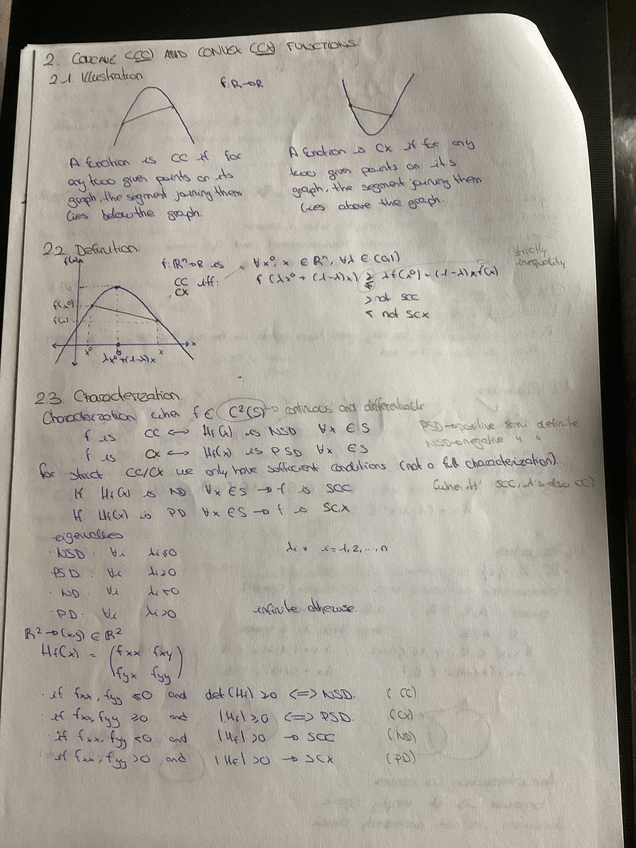 2. CONCAVE (CC) AND CONVEX (CX) FUNCTIONS
2.1 Illustration
f: R→R
A function is CC if for
any two given points on its
graph, the segment joining them
lies below the graph.
A function is CX if for any
two given points on its
graph, the segment joining them
lies above the graph.
2.2 Definition
f: Rⁿ→R is
CC iff:
CX
∀x⁰, x ∈ Rⁿ, ∀λ ∈ (0,1)
f(λx⁰ + (1-λ)x) ≥ λf(x⁰) + (1-λ)f(x)
≤
> not SCC
< not SCX
strictly
inequality
f(x)
f(x⁰)
f(x)
x⁰
λx⁰+(1-λ)x
x
2.3 Characterization
Characterization when f ∈ C²(S) → continuous and differentiable
f is CC ↔ Hf(x) is NSD ∀x ∈ S
f is CX ↔ Hf(x) is PSD ∀x ∈ S
PSD→positive semi definite
NSD→negative " "
for strict CC/CX we only have sufficient conditions (not a full characterization).
If Hf(x) is ND ∀x ∈ S → f is SCC
(when it's SCC, it's also CC)
If Hf(x) is PD ∀x ∈ S → f is SCX
eigenvalues
· NSD: ∀i λi ≤ 0
λi = i = 1, 2, ..., n
· PSD: ∀i λi ≥ 0
· ND: ∀i λi < 0
· PD: ∀i λi > 0
infinite otherwise
R² → (x,y) ∈ R²
Hf(x) = (fxx fxy
fyx fyy)
· if fxx, fyy ≤ 0 and det(Hf) ≥ 0 <=> NSD. (CC)
· if fxx, fyy ≥ 0 and |Hf| ≥ 0 <=> PSD. (CX)
· if fxx, fyy < 0 and |Hf| > 0 → SCC (ND)
· if fxx, fyy > 0 and |Hf| > 0 → SCX (PD)